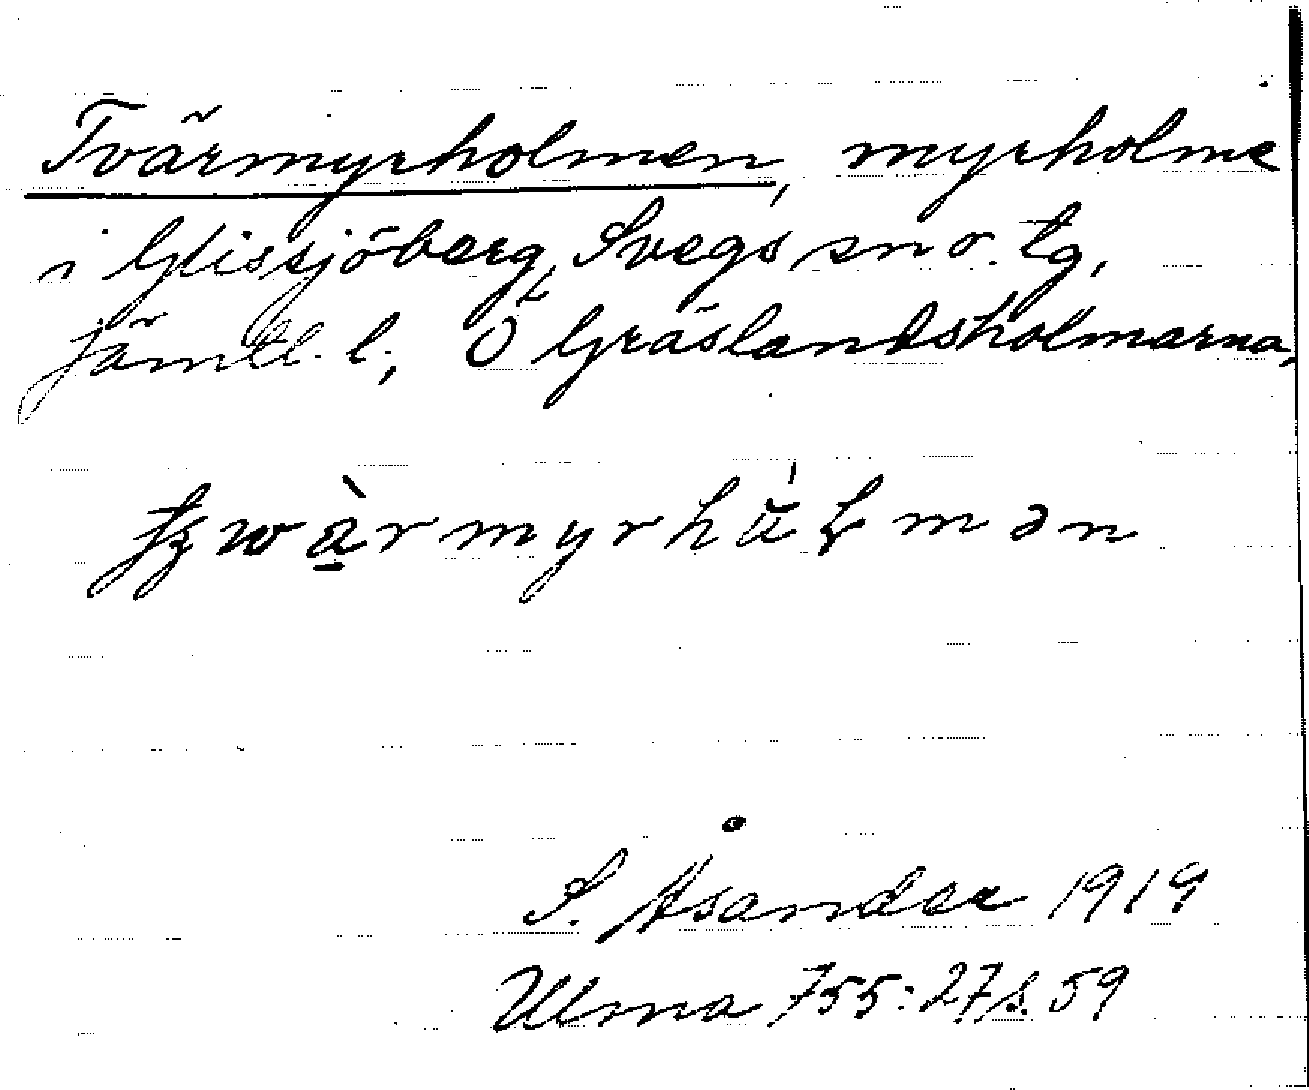 Tvärmyrholmen, myrholme
i Glissjöberg, Svegs sn o. tg,
Jämtl. l., Ö Gräslandsholmarna,
S. Åsander 1919
Ulma 755:27 s. 59